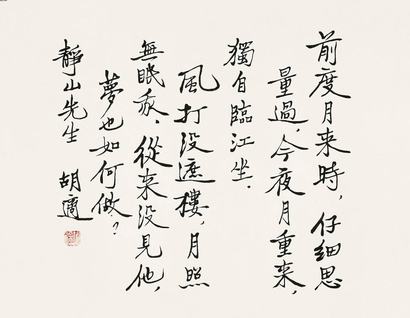 前度月来時，仔细思
量過，今夜月重来，
獨自臨江坐．
風打没遮樓，月照
無眠我，從来没見他，
夢也如何做？
靜山先生 胡適